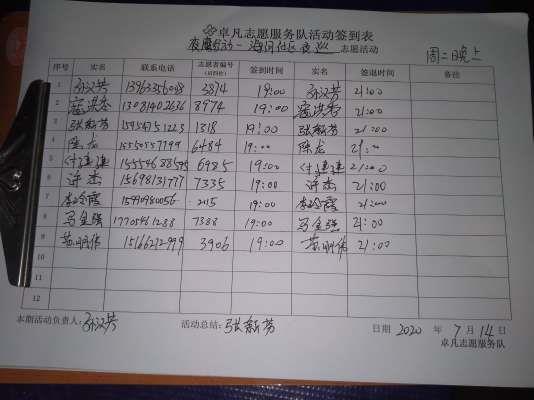 卓凡志愿服务队活动签到表
夜鹰行动-海润社区夜巡 志愿活动 周二晚上
序号 实名 联系电话 志愿者编号 签到时间 实名 签退时间 备注
1 孙汉芳 13963356098 3874 19:00 孙汉芳 21:00
2 寇洪香 13081402636 8974 19:00 寇洪香 21:00
3 张新芳 1318 19:00 张新芳 21:00
4 陈龙 15550577199 6484 19:00 陈龙 21:00
5 付建建 15554688585 6985 19:00 付建建 21:00
6 许杰 15698131777 7335 19:00 许杰 21:00
7 2115 19:00 21:00
8 马金强 7388 19:00 马金强 21:00
9 15166212999 3906 19:00 21:00
10
11
12
本期活动负责人:孙汉芳 活动总结:张新芳 日期 2020 年 7 月 14 日
卓凡志愿服务队